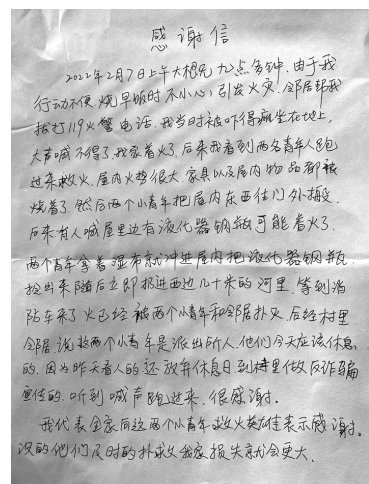 感谢信
2022年2月7日上午大概九点多钟,由于我
行动不便,烧早饭时不小心,引发火灾,邻居帮我
拨打119火警电话,我当时被吓得瘫坐在地上,
大声喊不得了,我家着火了,后来我看到两名青年人跑
过来救火,屋内火势很大,家具以及屋内物品都被
烧着了,然后两个小青年把屋内东西往门外搬,
后来有人喊屋里边有液化器钢瓶可能着火了,
两个青年拿着湿布就冲进屋内把液化器钢瓶
抢出来随后立即扔进西边几十米的河里,等到消
防车来了火已经被两个小青年和邻居扑灭,后经村里
邻居说这两个小青年是派出所人,他们今天应该休息
的,因为昨天看人的还放弃休息日,到村里做反诈骗
宣传的,听到喊声跑过来,很感谢.
我代表全家向这两个小青年救火英雄表示感谢。
没的他们及时的扑救我家损失就会更大.